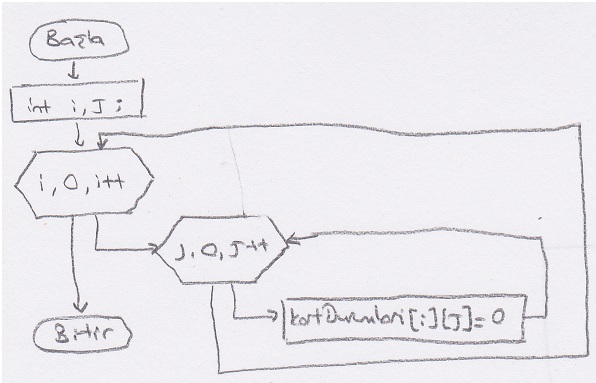 Başla
int i, J;
i, 0, i++
J, 0, J++
kartDurumlari[i][J]=0
Bitir